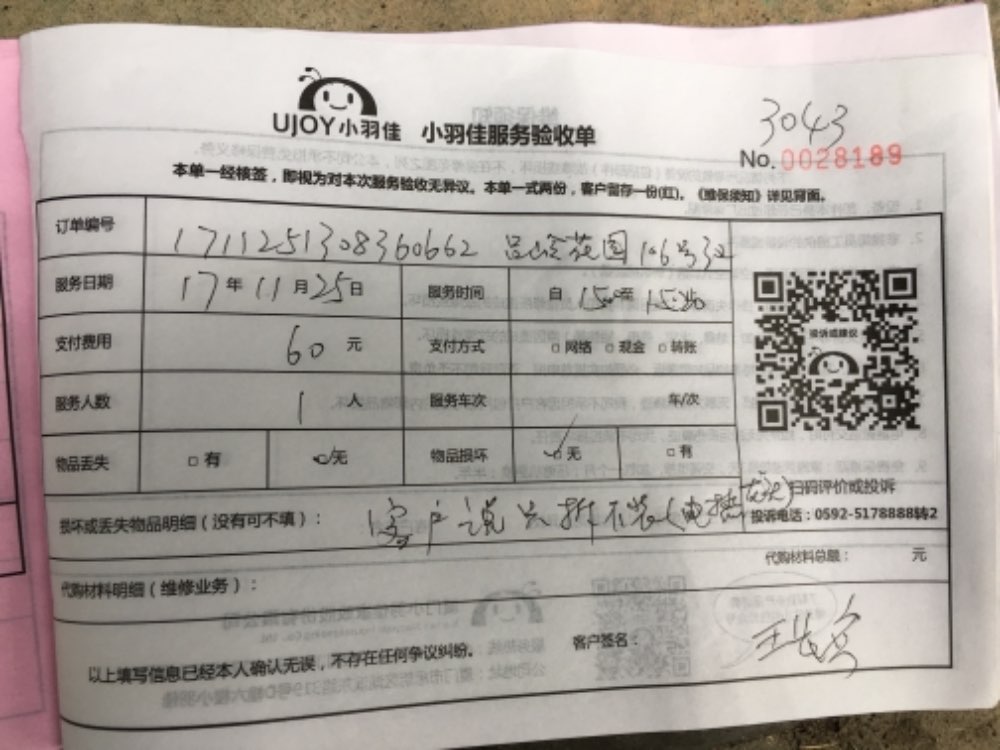 3043
UJOY小羽佳 小羽佳服务验收单
No.0028189
本单一经核签，即视为对本次服务验收无异议。本单一式两份，客户留存一份(红)。《维保须知》详见背面。
订单编号 1711251308360662 花园106号
服务日期 17年11月25日 服务时间 自 至
投诉或建议
支付费用 60元 支付方式 □网络 □现金 □转账
服务人数 1人 服务车次 车/次
物品丢失 □有 □无 物品损坏 □无 □有
扫码评价或投诉
损坏或丢失物品明细（没有可不填）： 客户说只拆不装(电插
投诉电话：0592-5178888转2
代购材料总额： 元
代购材料明细（维修业务）：
客户签名：
以上填写信息已经本人确认无误，不存在任何争议纠纷。